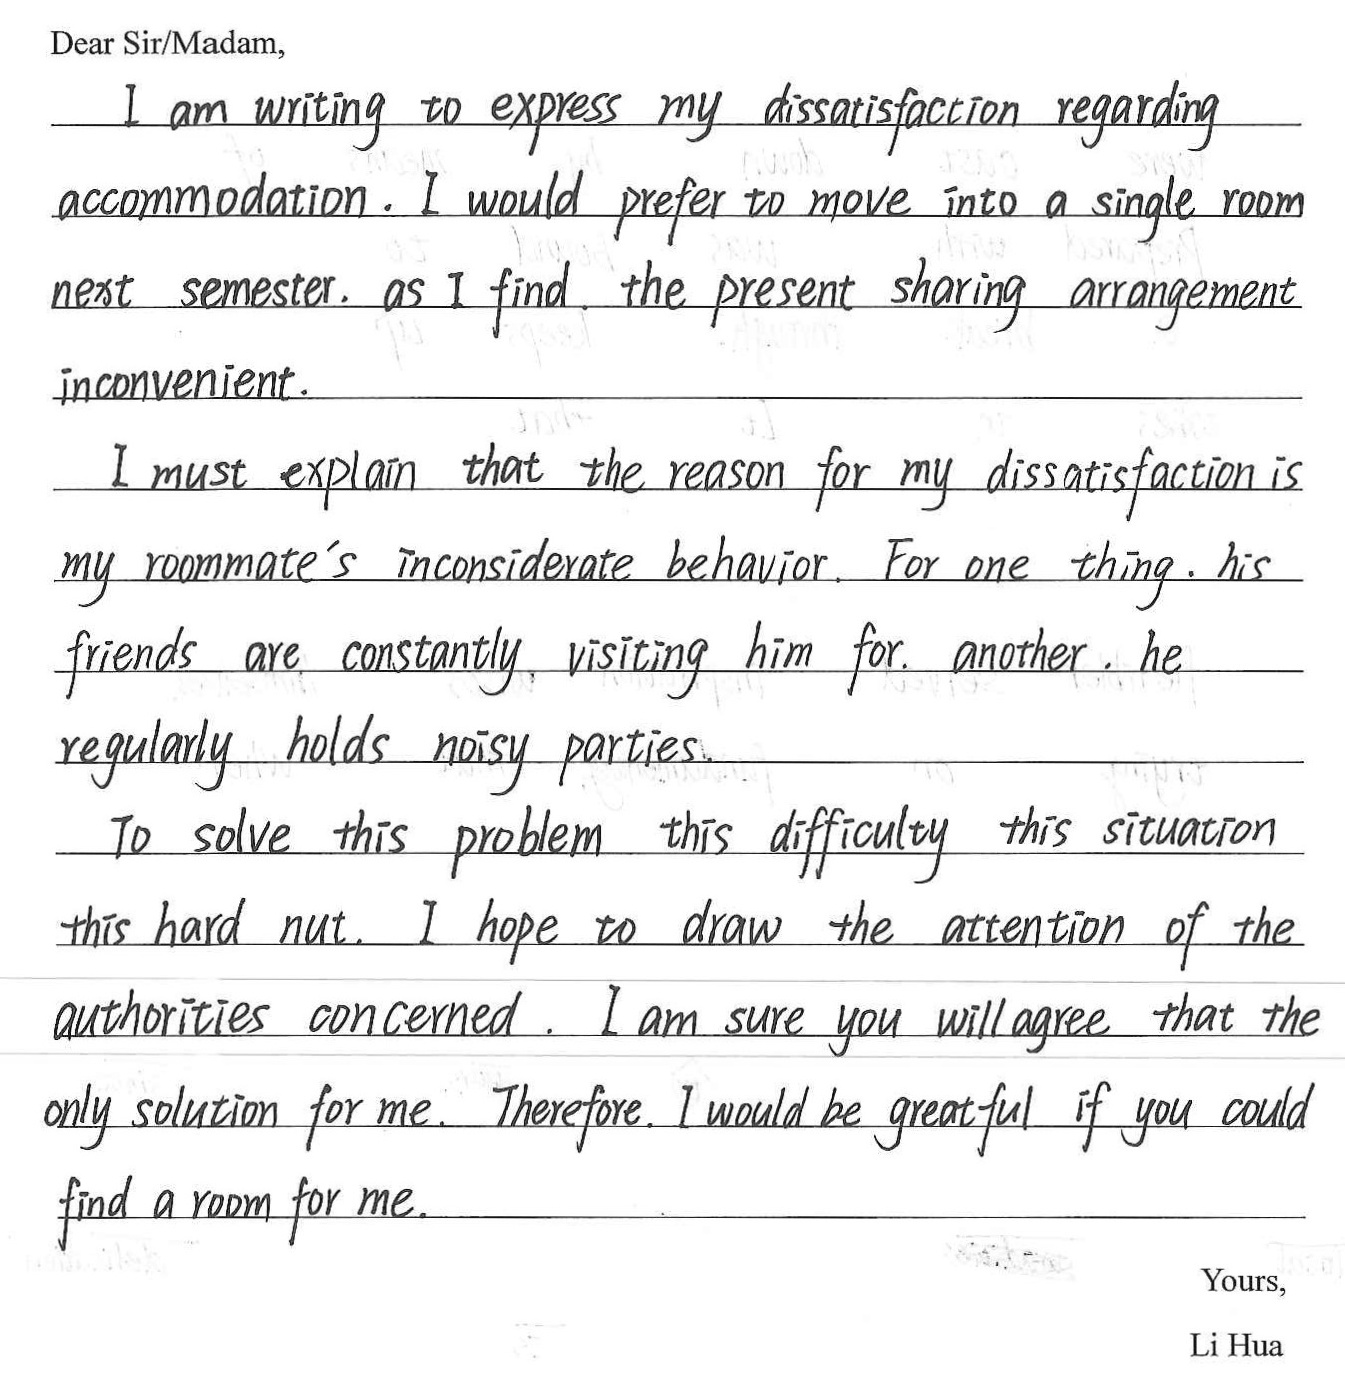 Dear Sir/Madam,
I am writing to express my dissatisfaction regarding
accommodation. I would prefer to move into a single room
next semester. as I find the present sharing arrangement
inconvenient.
I must explain that the reason for my dissatisfaction is
my roommate's inconsiderate behavior. For one thing. his
friends are constantly visiting him for. another. he
regularly holds noisy parties.
To solve this problem this difficulty this situation
this hard nut. I hope to draw the attention of the
authorities concerned. I am sure you will agree that the
only solution for me. Therefore. I would be greatful if you could
find a room for me.
Yours,
Li Hua